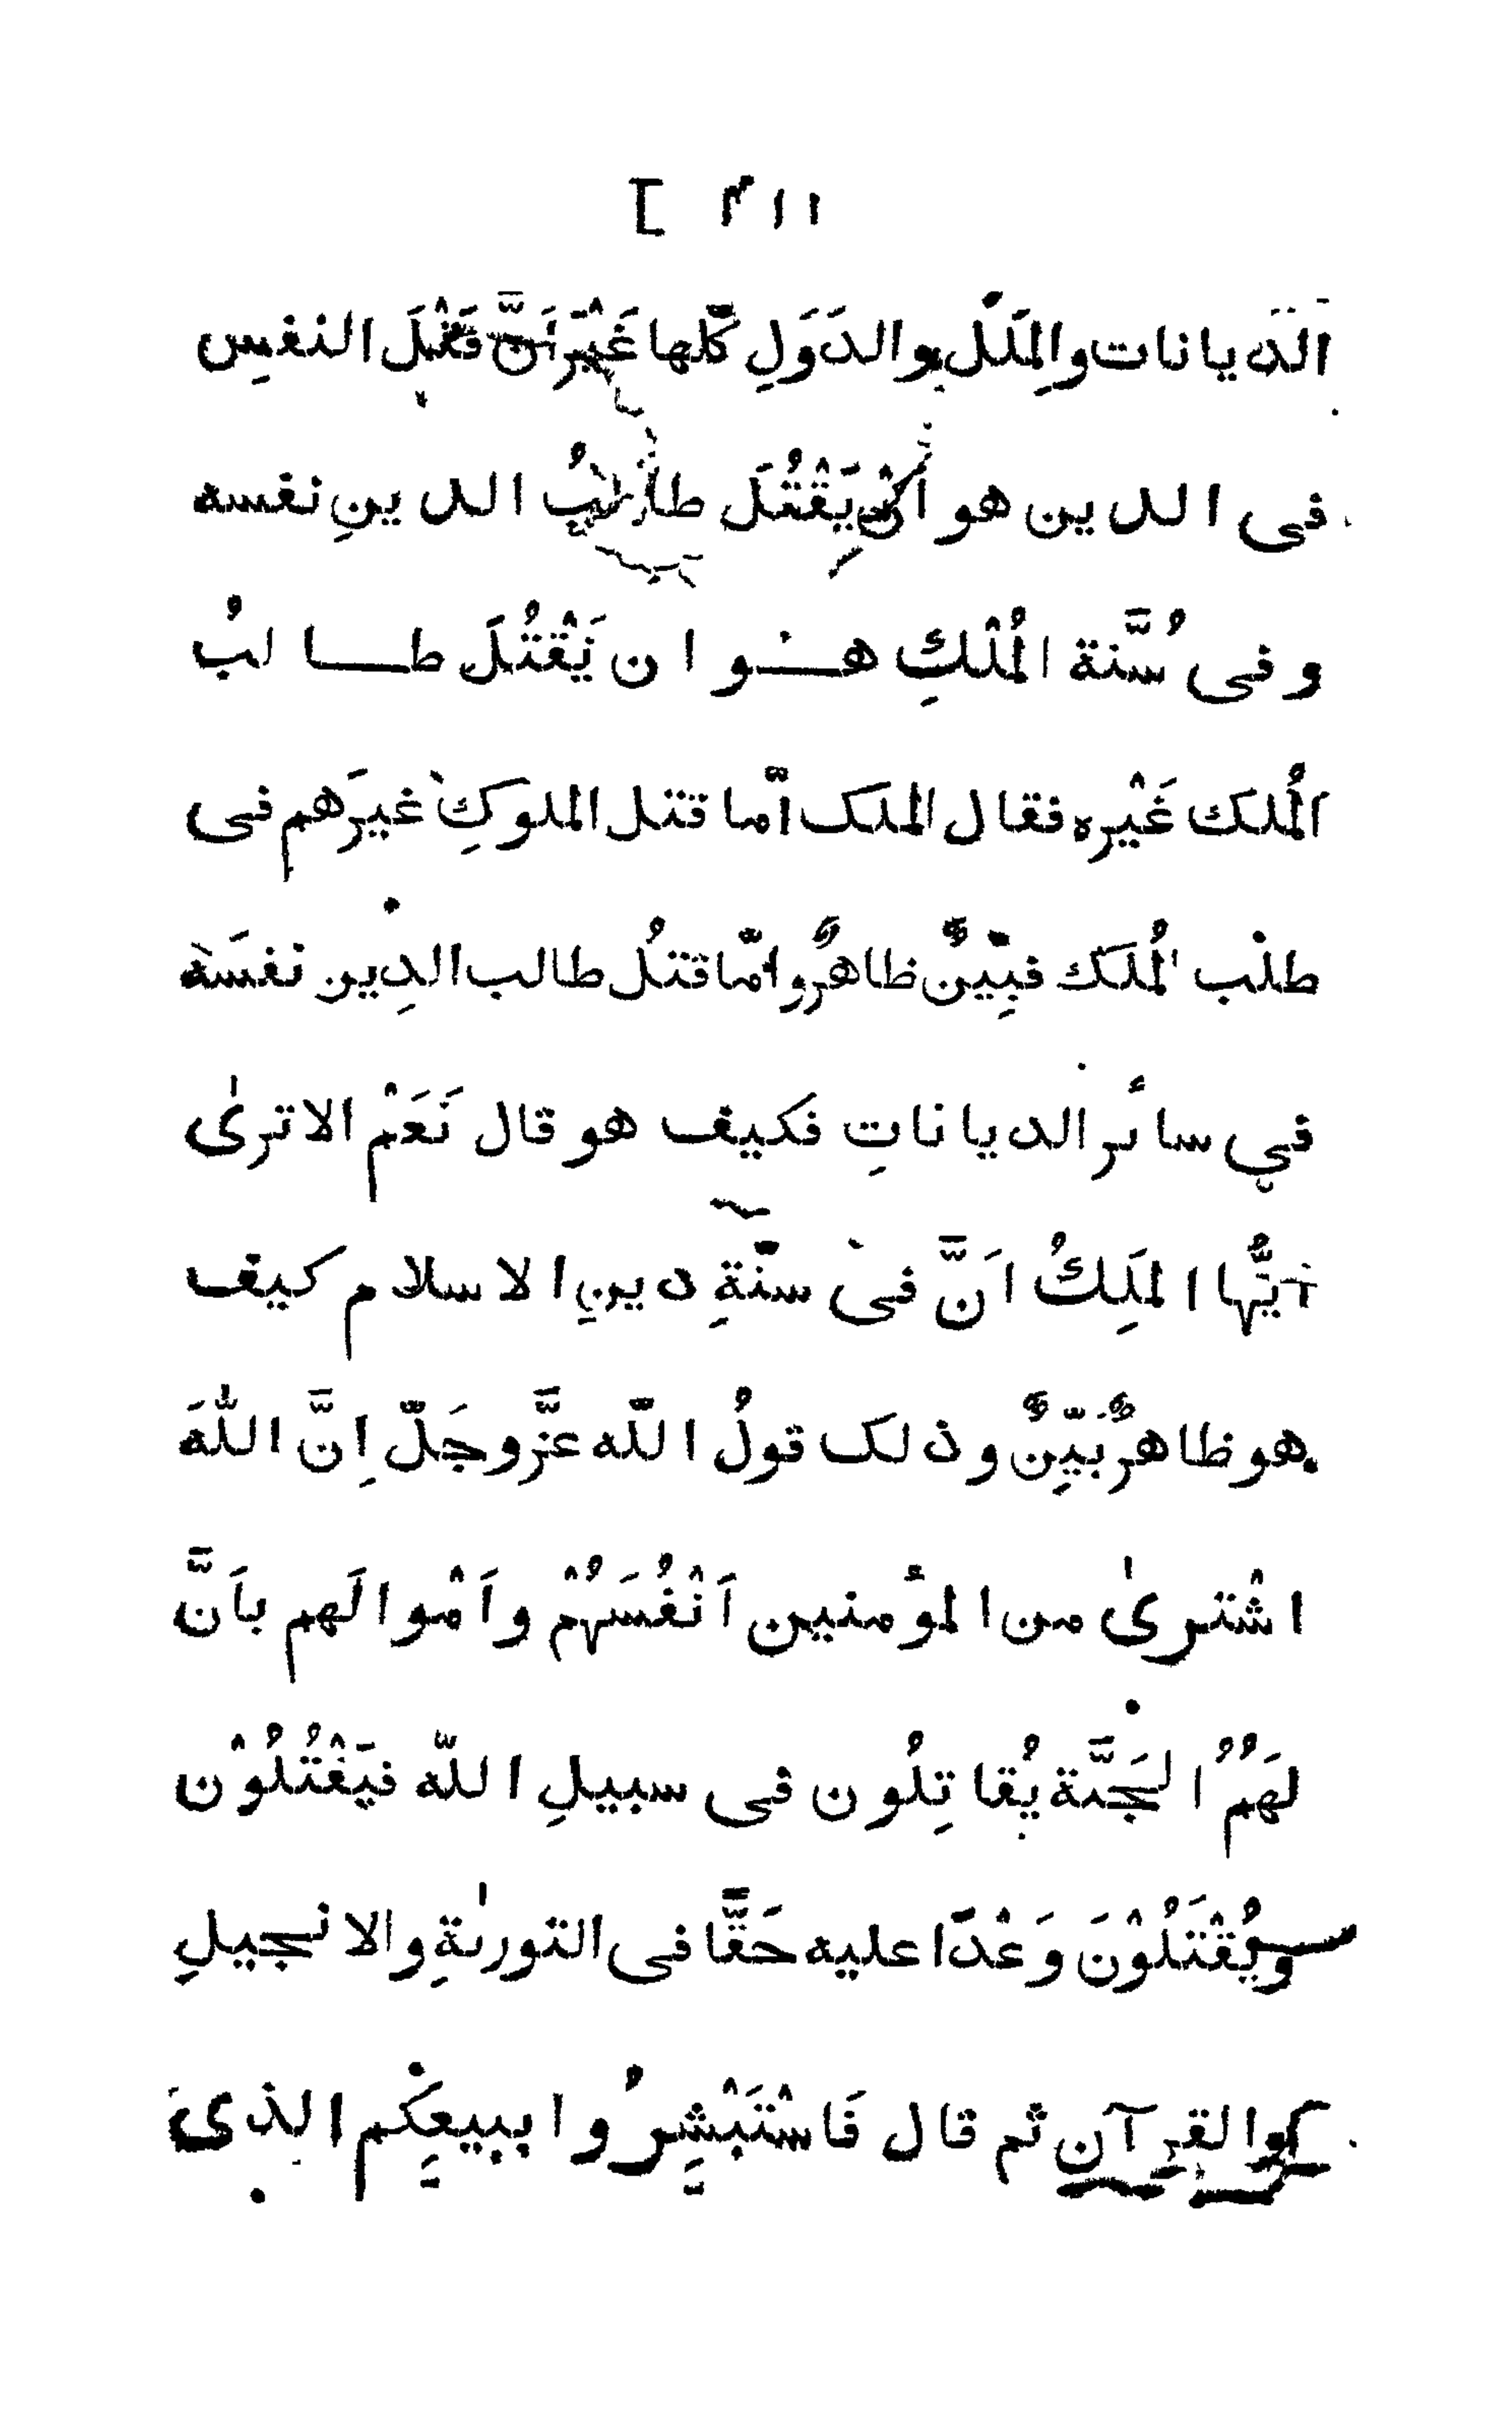 [ ٣١١
الديانات والمِلَل والدَوَلِ كلّها غَيْرَ اَنَّ قَتْلَ النفسِ
فى الدين هو اَنْ يَقْتُلَ طالبُ الدينِ نفسه
وفى سُنَّة المُلْكِ هـــو ان يَقْتُلَ طـــالبُ
المُلك غَيْره فقال الملك اَمّا قتل الملوكِ غيرَهم فى
طلْب المُلك فبَيِّنٌ ظاهرٌ وامّا قتلُ طالب الدِين نفسَه
في سائر الدياناتِ فكيف هو قال نَعَمْ الا ترىٰ
ايُّها المَلِكُ اَنَّ فى سنّةِ دينِ الاسلام كيف
هو ظاهرٌ بَيِّنٌ وذلك قولُ اللّه عزَّ وجَلّ اِنَّ اللّٰهَ
اشْترىٰ من المؤمنين اَنْفُسَهُمْ واَمْوالَهم باَنَّ
لهَمُ الجَنَّة يُقاتِلُون فى سبيلِ اللّه فيَقْتُلُوْن
ويُقْتَلُوْنَ وَعْدًا عليه حَقًّا فى التورىٰةِ والانجيلِ
والقرآن ثم قال فَاسْتَبْشِرُوا ببيعِكم الذى